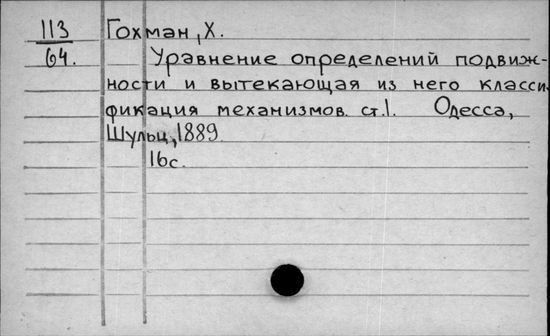 113
64.
Гохман, Х.
Уравнение определений подвиж-
ности и вытекающая из него класси-
фикация механизмов. ст.1. Одесса,
Шульц, 1889.
16с.